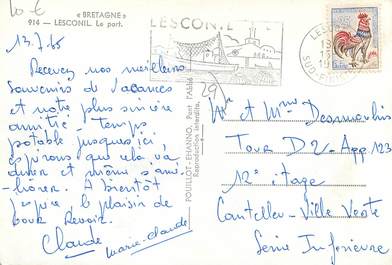 10 €
« BRETAGNE »
914 — LESCONIL. Le port.
13.7.65
Recevez nos meilleurs
Souvenirs de vacances
et notre plus sincère
amitié. Temps
potable jusques ici,
espérons que cela va
durer et même s'amé-
liorer. A bientôt
j'espère le plaisir de
vous Revoir.
Claude
Marie-Claude
POUILLOT-EPHANNO, Pont l'Abbé
Reproduction interdite.
LESCONIL
29
LES
SUD-FIN
Mr et Mme Desmoulins
Tour D2 - App 123
12° étage
Canteleu - Ville Verte
Seine Inférieure